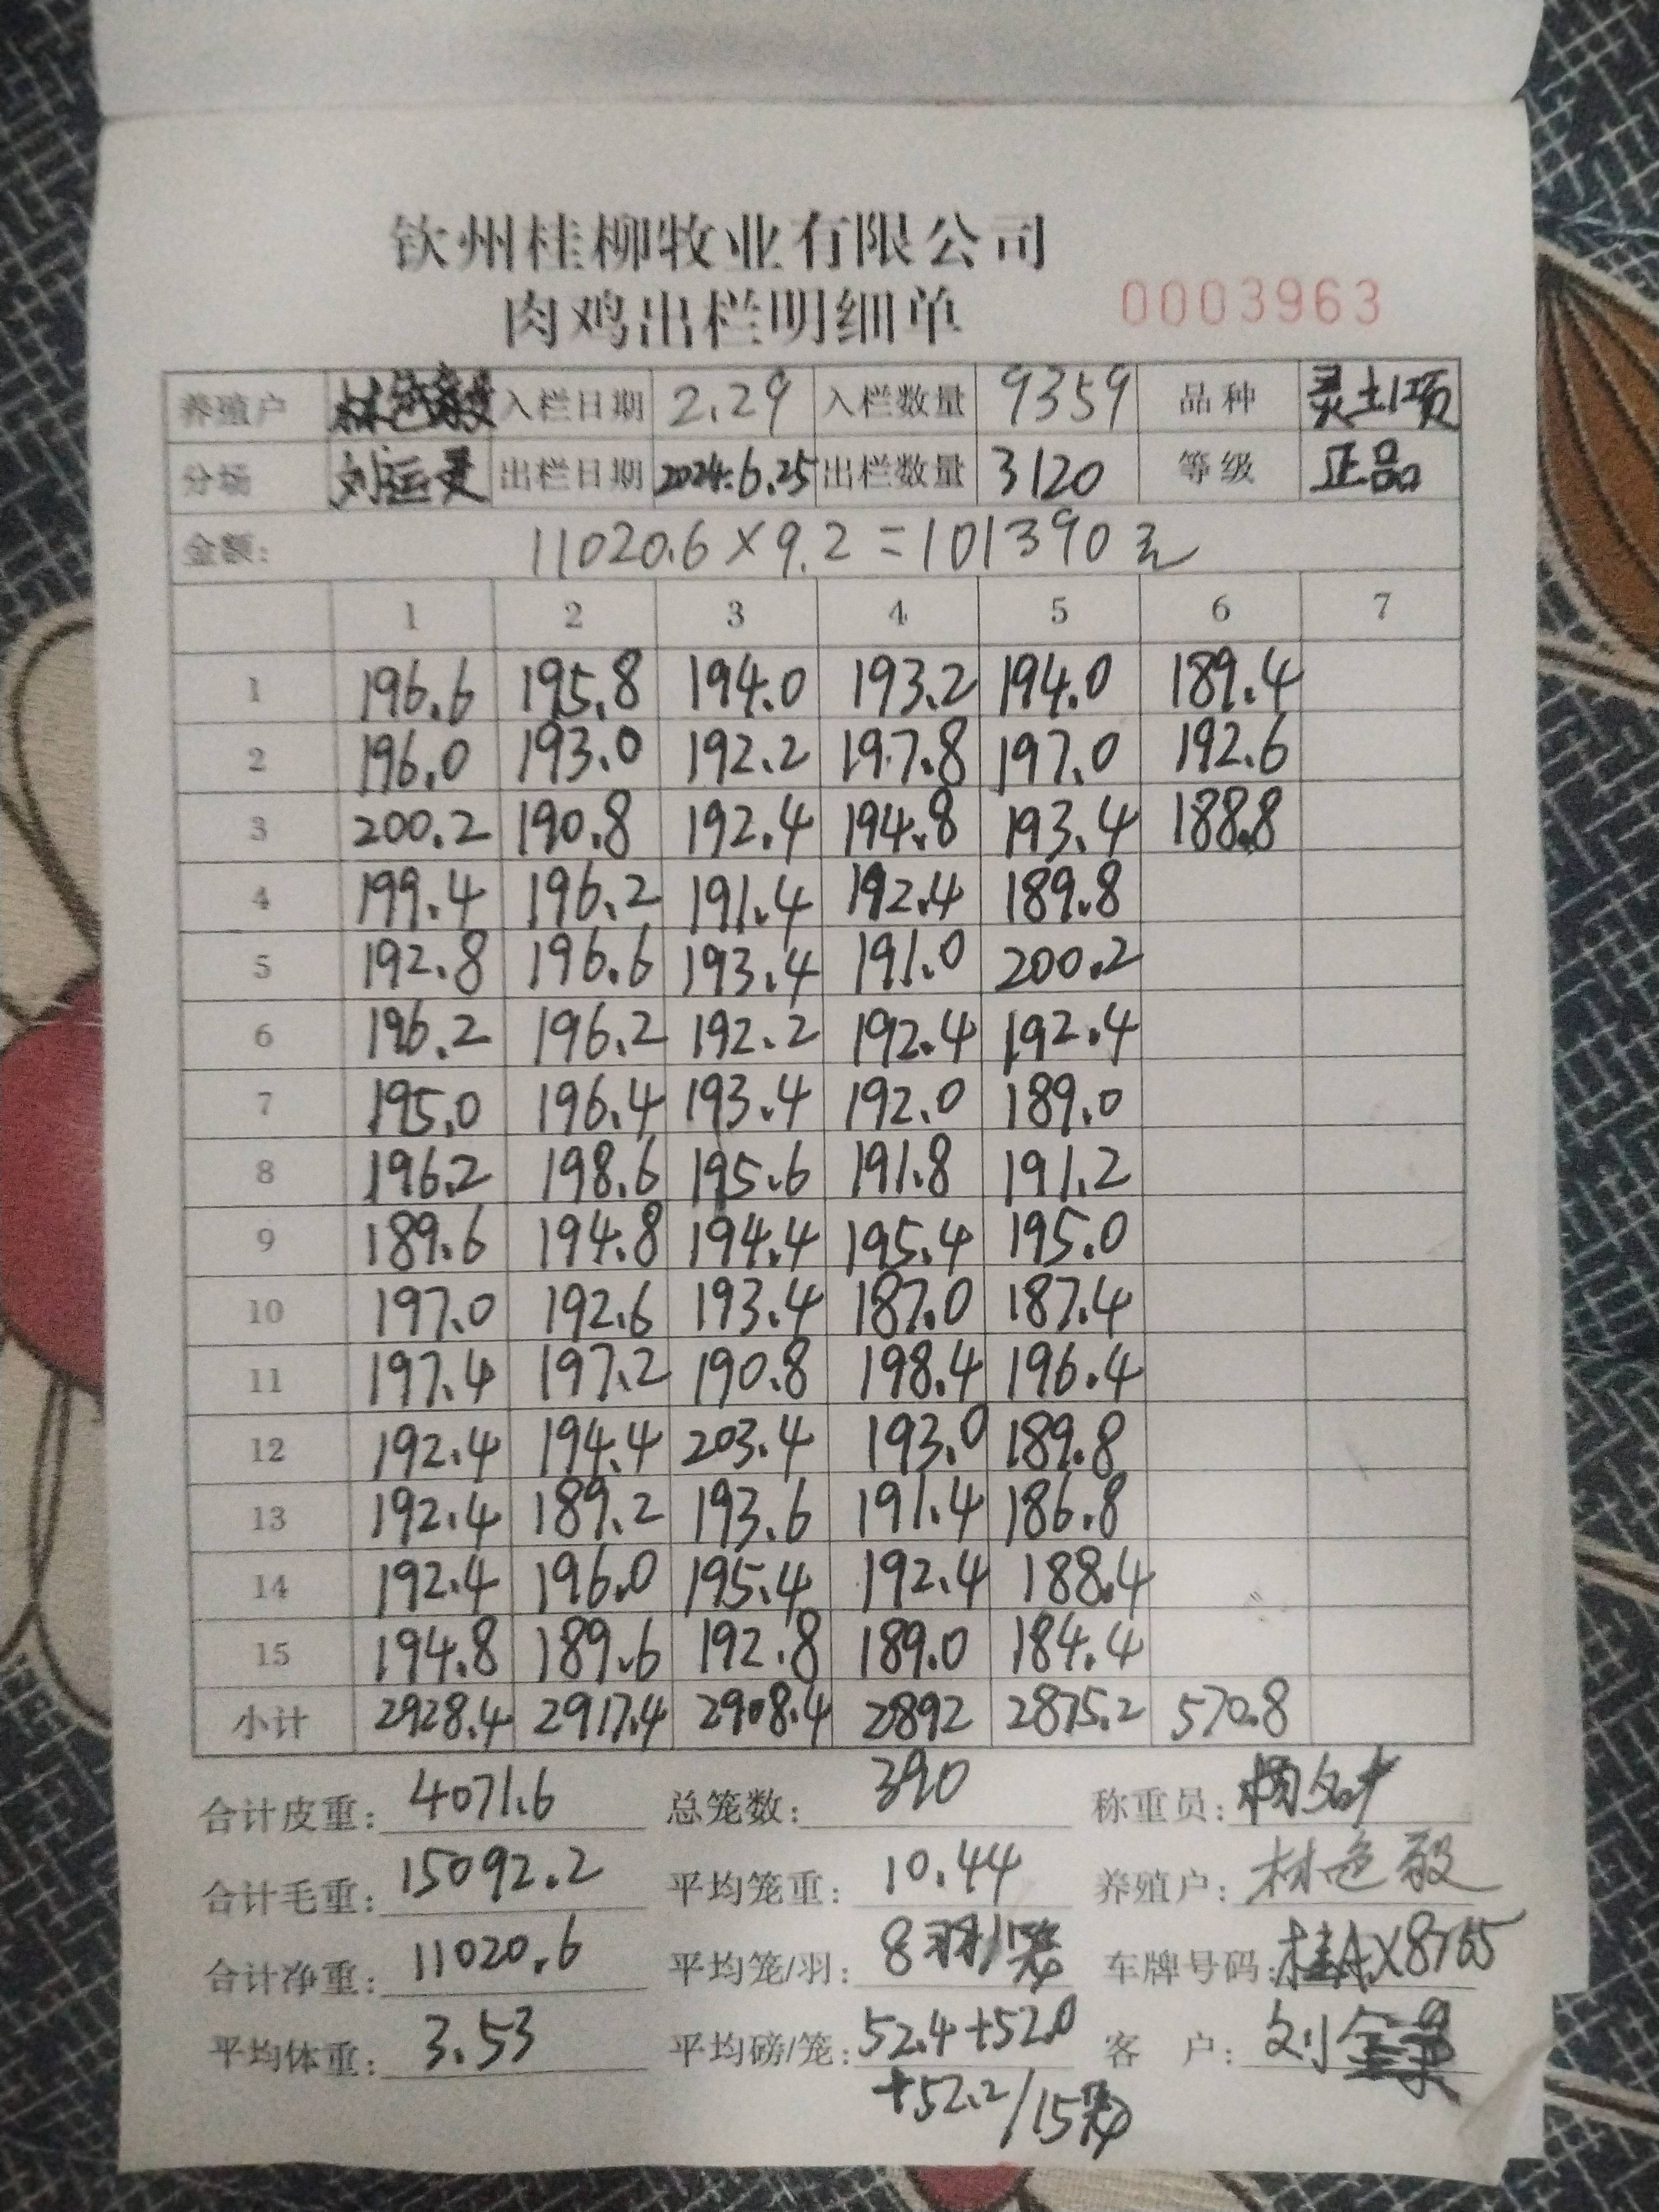 钦州桂柳牧业有限公司
肉鸡出栏明细单 0003963
养殖户 入栏日期 2.29 入栏数量 9359 品种 灵土1项
分场 刘运灵 出栏日期 2024.6.25 出栏数量 3120 等级 正品
金额: 11020.6×9.2=101390元
1 2 3 4 5 6 7
1 196.6 195.8 194.0 193.2 194.0 189.4
2 196.0 193.0 192.2 197.8 197.0 192.6
3 200.2 190.8 192.4 194.8 193.4 188.8
4 199.4 196.2 191.4 192.4 189.8
5 192.8 196.6 193.4 191.0 200.2
6 196.2 196.2 192.2 192.4 192.4
7 195.0 196.4 193.4 192.0 189.0
8 196.2 198.6 195.6 191.8 191.2
9 189.6 194.8 194.4 195.4 195.0
10 197.0 192.6 193.4 187.0 187.4
11 197.4 197.2 190.8 198.4 196.4
12 192.4 194.4 203.4 193.0 189.8
13 192.4 189.2 193.6 191.4 186.8
14 192.4 196.0 195.4 192.4 188.4
15 194.8 189.6 192.8 189.0 184.4
小计 2928.4 2917.4 2908.4 2892 2875.2 570.8
合计皮重: 4071.6 总笼数: 390 称重员:
合计毛重: 15092.2 平均笼重: 10.44 养殖户: 林色毅
合计净重: 11020.6 平均笼/羽: 8羽/笼 车牌号码: 桂AX8765
平均体重: 3.53 平均磅/笼: 52.4+52.0 客 户: 刘
+52.2/15笼